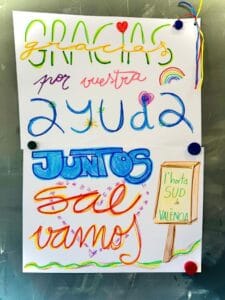 GRACIAS
gracias
por vuestra
ayuda
JUNTOS
Sal
vamos
l'horta
SUD
de
VALÈNCIA